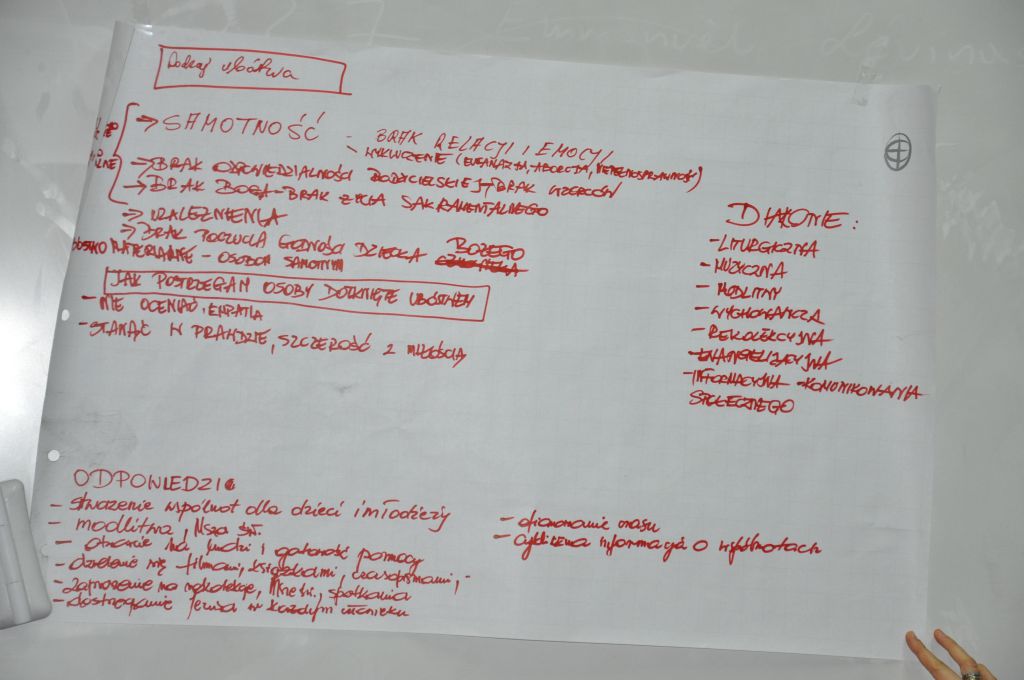 Emmanuel Lévinas
Rodzaj ubóstwa
→ SAMOTNOŚĆ - BRAK RELACJI I EMOCJI
- WYKLUCZENIE (EUTANAZJA, ABORCJA, NIEPEŁNOSPRAWNOŚĆ)
→ BRAK ODPOWIEDZIALNOŚCI RODZICIELSKIEJ, BRAK WZORCÓW
→ BRAK BOGA - BRAK ŻYCIA SAKRAMENTALNEGO
→ UZALEŻNIENIA
→ BRAK POCZUCIA GODNOŚCI DZIECKA BOŻEGO
MATERIALNE - OSOBOM SAMOTNYM
JAK POSTRZEGAM OSOBY DOTKNIĘTE UBÓSTWEM
- NIE OCENIAĆ, EMPATIA
- STANĄĆ W PRAWDZIE, SZCZEROŚĆ Z MIŁOŚCIĄ
DIAKONIE:
- LITURGICZNA
- MUZYCZNA
- MODLITWY
- WYCHOWAWCZA
- REKOLEKCYJNA
- EWANGELIZACYJNA
- INFORMACYJNA - KOMUNIKOWANIA
SPOŁECZNEGO
ODPOWIEDZI
- stworzenie wspólnot dla dzieci i młodzieży
- modlitwa, Msza św.
- otwarcie na ludzi i gotowość pomocy
- dzielenie się filmami, książkami, czasopismami,
- zaproszenie na rekolekcje, Msze św., spotkania
- dostrzeganie Jezusa w każdym człowieku
- ofiarowanie czasu
- cykliczna informacja o wspólnotach